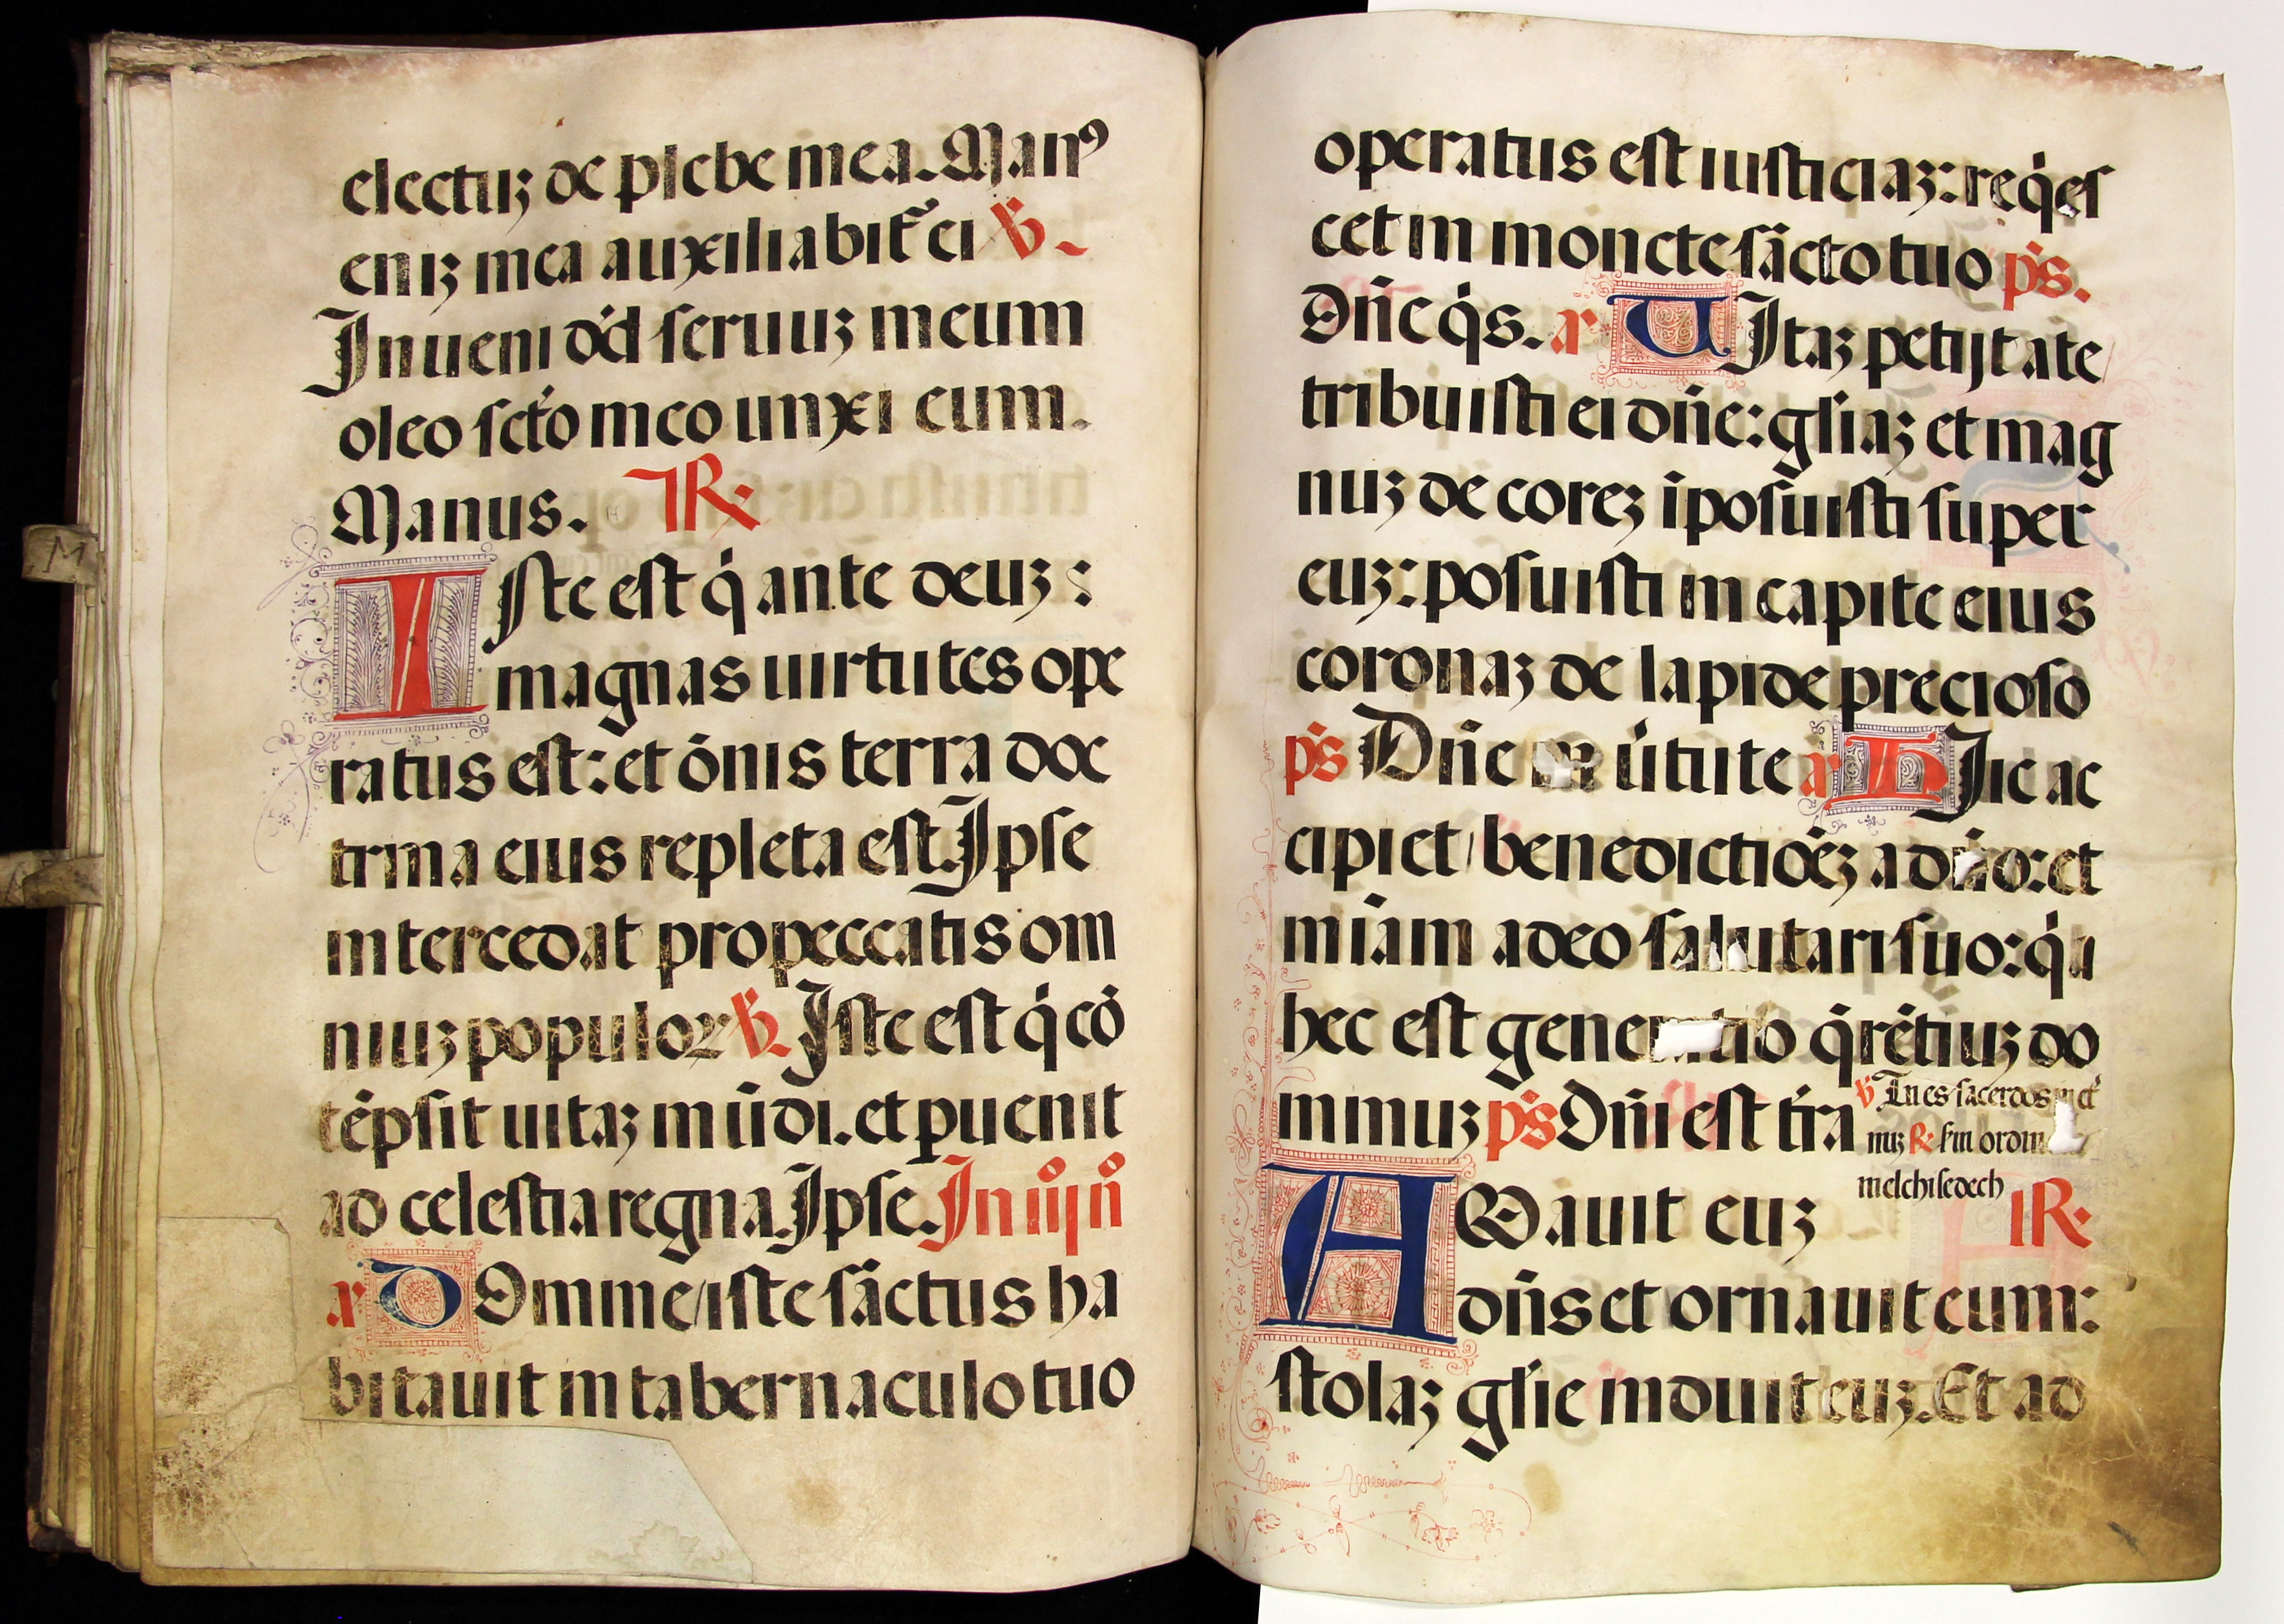 electuꝫ de plebe mea. Manꝰ
eniꝫ mea auxiliabit᷑ ei ℣.
Inueni dd̾ seruuꝫ meum
oleo scto meo unxi eum.
Manus. ℟.
Iſte est q̇ ante deuꝫ:
magnas uirtutes ope
ratus est: et ōnis terra doc
trina eius repleta est. Ipse
intercedat pro peccatis om
niuꝫ populoꝝ ℣. Iste est q̇ cō
tēpsit uitaꝫ mūdi. et ꝑuenit
ad celestia regna. Ipse. In iij n̊
a᷑ DOmine iste sāctus ha
bitauit in tabernaculo tuo
operatus est iusticiaꝫ: req̇es
cet in moncte sācto tuo ps.
Dn̄e q̇s. a᷑ UItaꝫ petijt a te
tribuisti ei dn̄e: gl̄iaꝫ et mag
nuꝫ decoreꝫ īposuisti super
euꝫ: posuisti in capite eius
coronaꝫ de lapide precioso
ps Dn̄e in ūtute a᷑ HIic ac
cipiet benedictiōeꝫ a dn̄o: et
mīam a deo salutari suo: q̇a
hec est generatio q̄rētiuꝫ do
minuꝫ ps Dn̄i est tr̄a ℣ Tu es sacerdos in et̄
nuꝫ ℟. sm ordin
melchisedech
AMauit euꝫ ℟.
dn̄s et ornauit eum:
stolaꝫ gl̄ie induit euꝫ. Et ad
M